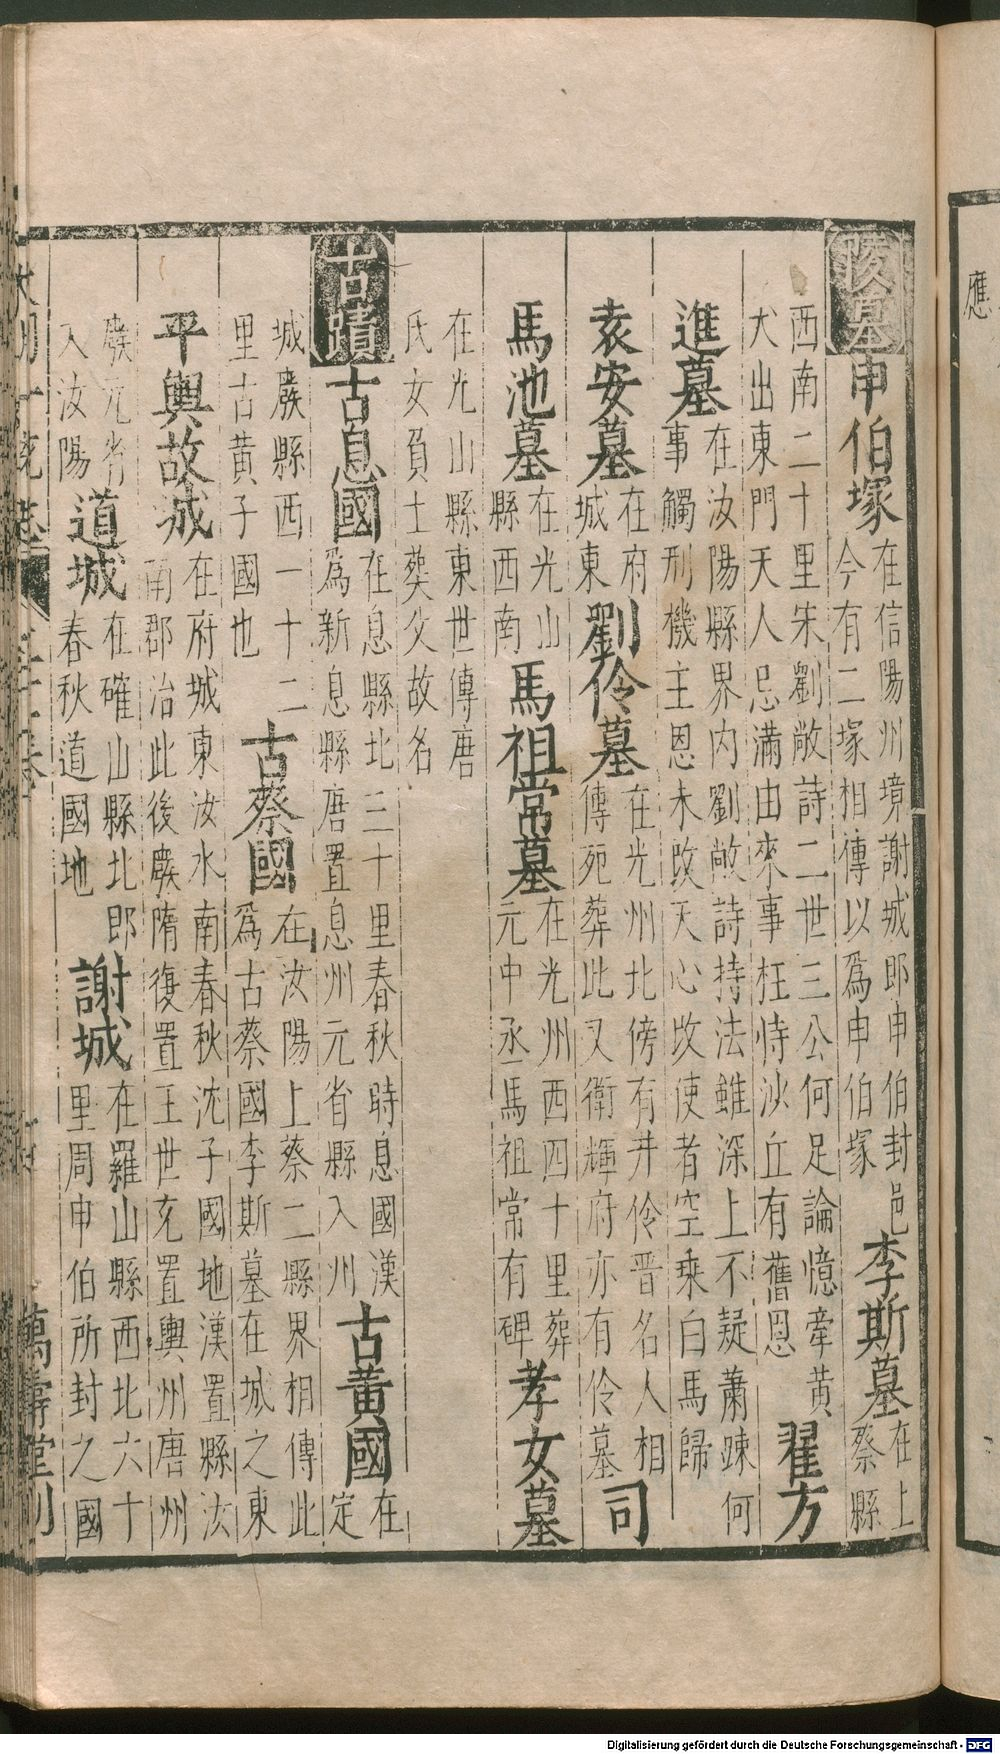 應
陵墓申伯塚在信陽州境謝城即申伯封邑今有二塚相傳以爲申伯塚李斯墓在上蔡縣
西南二十里宋劉敞詩二世三公何足論憶牽黃犬出東門天人忌滿由來事枉恃沙丘有舊恩翟方
進墓在汝陽縣界内劉敞詩持法雖深上不疑蕭踈何事觸刑機主恩未改天心改使者空乘白馬歸
袁安墓在府城東劉伶墓在光州北傍有井伶晋名人相傳死葬此又衛輝府亦有伶墓司
馬池墓在光山縣西南馬祖常墓在光州西四十里葬元中丞馬祖常有碑孝女墓
在光山縣東世傳唐氏女負土葬父故名
古蹟古息國在息縣北三十里春秋時息國漢爲新息縣唐置息州元省縣入州古黃國在定
城廢縣西一十二里古黃子國也古蔡國在汝陽上蔡二縣界相傳此爲古蔡國李斯墓在城之東
平輿故城在府城東汝水南春秋沈子國地漢置縣汝南郡治此後廢隋復置王世充置輿州唐州
廢元省入汝陽道城在確山縣北即春秋道國地謝城在羅山縣西北六十里周申伯所封之國
萬壽堂刊
Digitalisierung gefördert durch die Deutsche Forschungsgemeinschaft - DFG